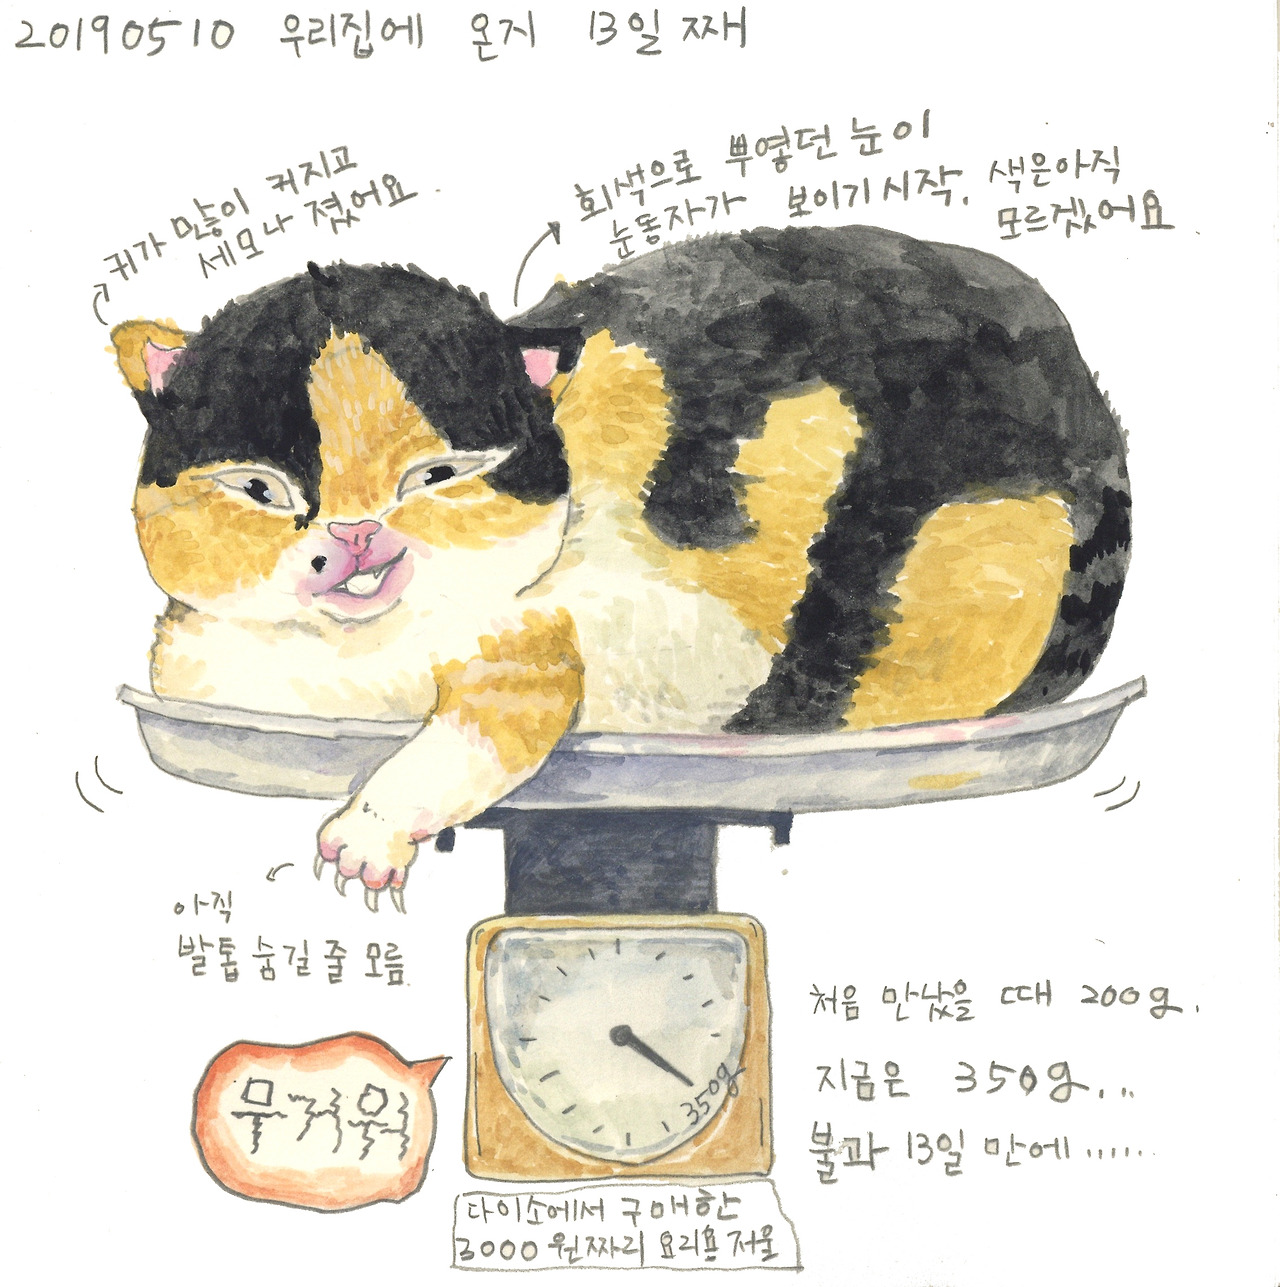 20190510 우리집에 온지 13일 째
귀가 많이 커지고
세모나 졌어요.
회색으로 뿌옇던 눈이
눈동자가 보이기 시작. 색은 아직
모르겠어요.
아직
발톱 숨길 줄 모름.
처음 만났을 때 200g.
지금은 350g...
불과 13일 만에......
350g
무거워
다이소에서 구매한
3000원짜리 요리용 저울